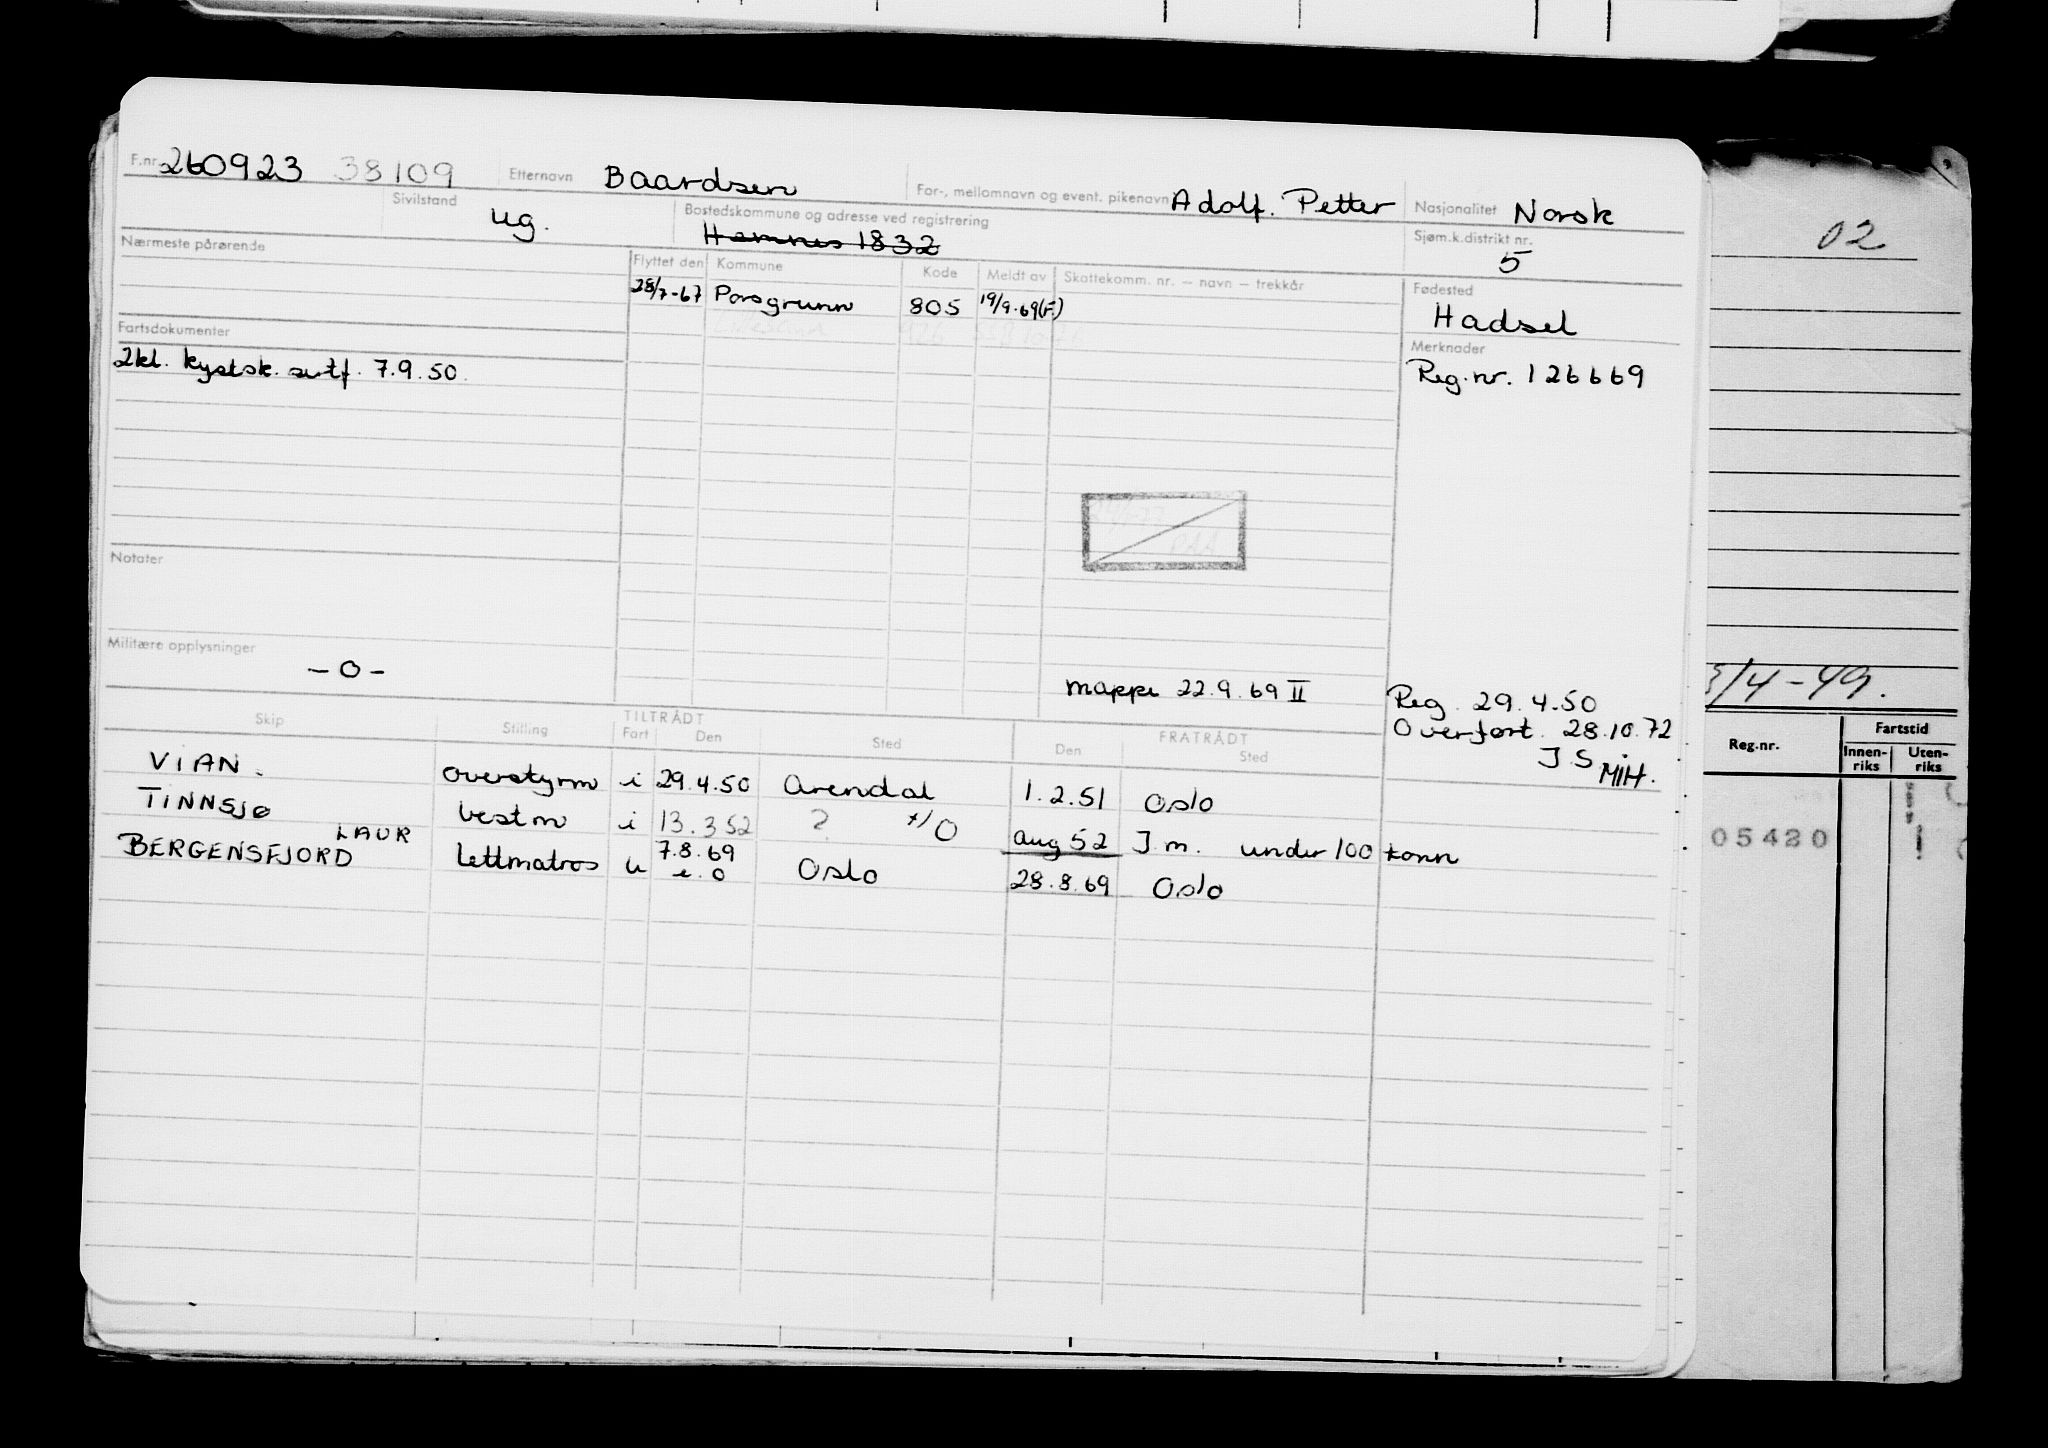 F.nr. 260923 38109 Etternavn Baardsen For-, mellomnavn og event. pikenavn Adolf. Petter Nasjonalitet Norsk
Sivilstand ug. Bostedskommune og adresse ved registrering Hemnes 1832 Sjøm.k.distrikt nr. 5
Nærmeste pårørende
Flyttet den Kommune Kode Meldt av Skattekomm. nr. — navn — trekkår
28/7-67 Porsgrunn 805 19/9.69(F.)
Fødested
Hadsel
Fartsdokumenter
2kl. kystsk. sertf. 7.9.50.
Merknader
Reg.nr. 126669
Notater
Militære opplysninger
- 0 -
mappe 22.9.69 II
Reg. 29.4.50
Overført. 28.10.72
J.S. MIH.
Skip Stilling TILTRÅDT Fart Den Sted FRATRÅDT Den Sted
VIAN. overstyrm i 29.4.50 Arendal 1.2.51 Oslo
TINNSJØ bestm i 13.3.52 ? O aug 52 J.m. under 100 tonn
LAUR
BERGENSFJORD lettmatros u 7.8.69 e.O Oslo 28.8.69 Oslo
02
/4-49.
Reg.nr. Fartstid
Innen-riks Uten-riks
05420